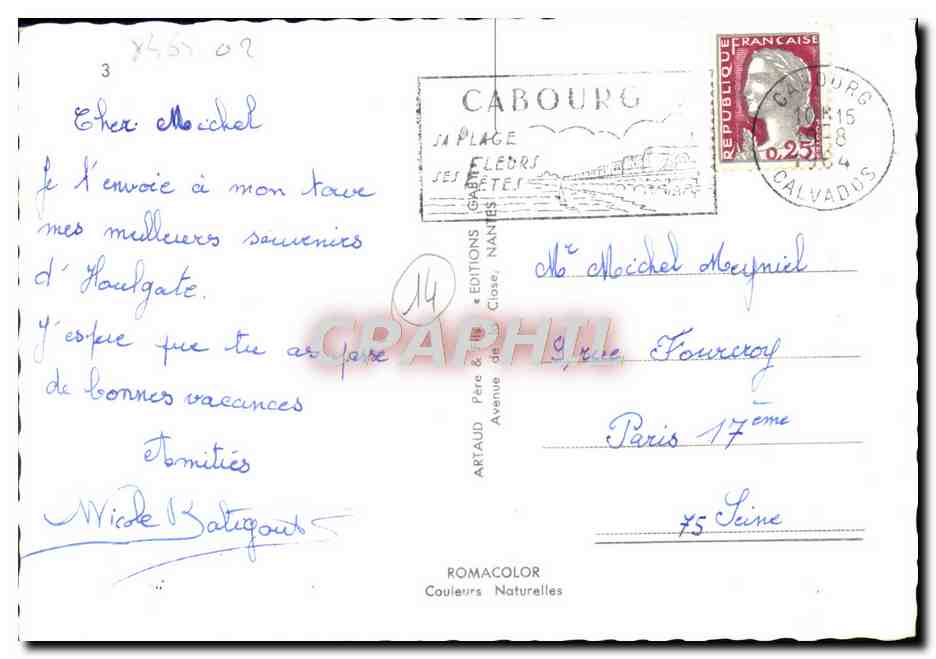 3
02
Cher Michel
Je t'envoie à mon tour
mes meilleurs souvenirs
d'Houlgate.
J'espère que tu as passé
de bonnes vacances
Amitiés
Nicole
CABOURG
SA PLAGE
FLEURS
SES FÊTES
REPUBLIQUE FRANCAISE
0,25
CABOURG
10H15
-8
1964
CALVADOS
14
CPAPHIL
ARTAUD Père & Fils « EDITIONS GABY »
Avenue de la Close, NANTES
Mr Michel Meyniel
9, rue Fourcroy
Paris 17ème
75 Seine
ROMACOLOR
Couleurs Naturelles